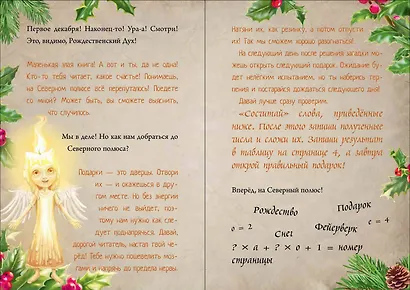 Первое декабря! Наконец-то! Ура-а! Смотри!
Это, видимо, Рождественский Дух!
Маленькая злая книга! А вот и ты, да не одна!
Кто-то тебя читает, какое счастье! Понимаешь,
на Северном полюсе всё перепуталось! Поедете
со мной? Может быть, вы сможете выяснить,
что случилось.
Мы в деле! Но как нам добраться до
Северного полюса?
Подарки — это дверцы. Отвори
их — и окажешься в другом
месте. Но без энергии
ничего не выйдет, поэтому
нам нужно как следует
поднапрячься. Давай,
дорогой читатель, настал твой черёд!
Тебе нужно пошевелить мозгами
и напрячь до предела нервы.
Натяни их, как резинку, а потом отпусти
их! Так мы сможем хорошо разогнаться!
На следующий день после решения загадки можешь
открыть следующий подарок. Ожидание
будет нелёгким испытанием, но ты наберись терпения
и постарайся дождаться следующего дня!
Давай лучше сразу проверим.
«Сосчитай» слова, приведённые
ниже. После этого запиши полученные
числа и сложи их. Запиши результат
в таблицу на странице 4, а завтра
открой правильный подарок!
Вперёд, на Северный полюс!
Рождество Подарок
о = 2 Снег Фейерверк е = 4
? × а + ? × о + 1 = номер
страницы